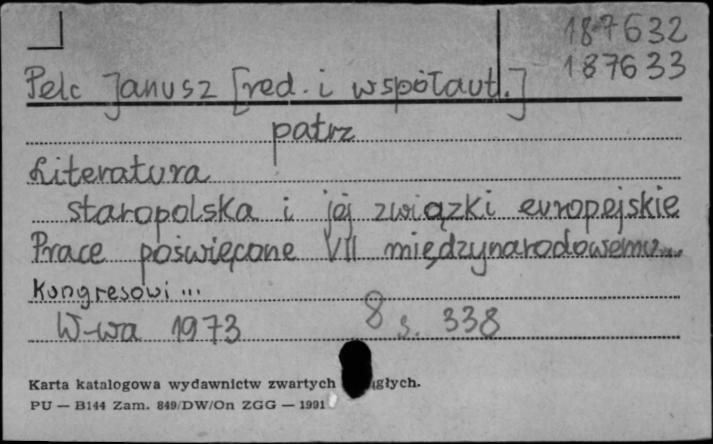 187632
187633
Pelc Janusz [red. i współaut.]
patrz
Literatura
staropolska i jej związki europejskie
Prace poświęcone VII międzynarodowemu...
Kongresowi ...
W-wa 1973 8 s. 338
Karta katalogowa wydawnictw zwartych
PU — B144 Zam. 849/DW/On ZGG — 1991